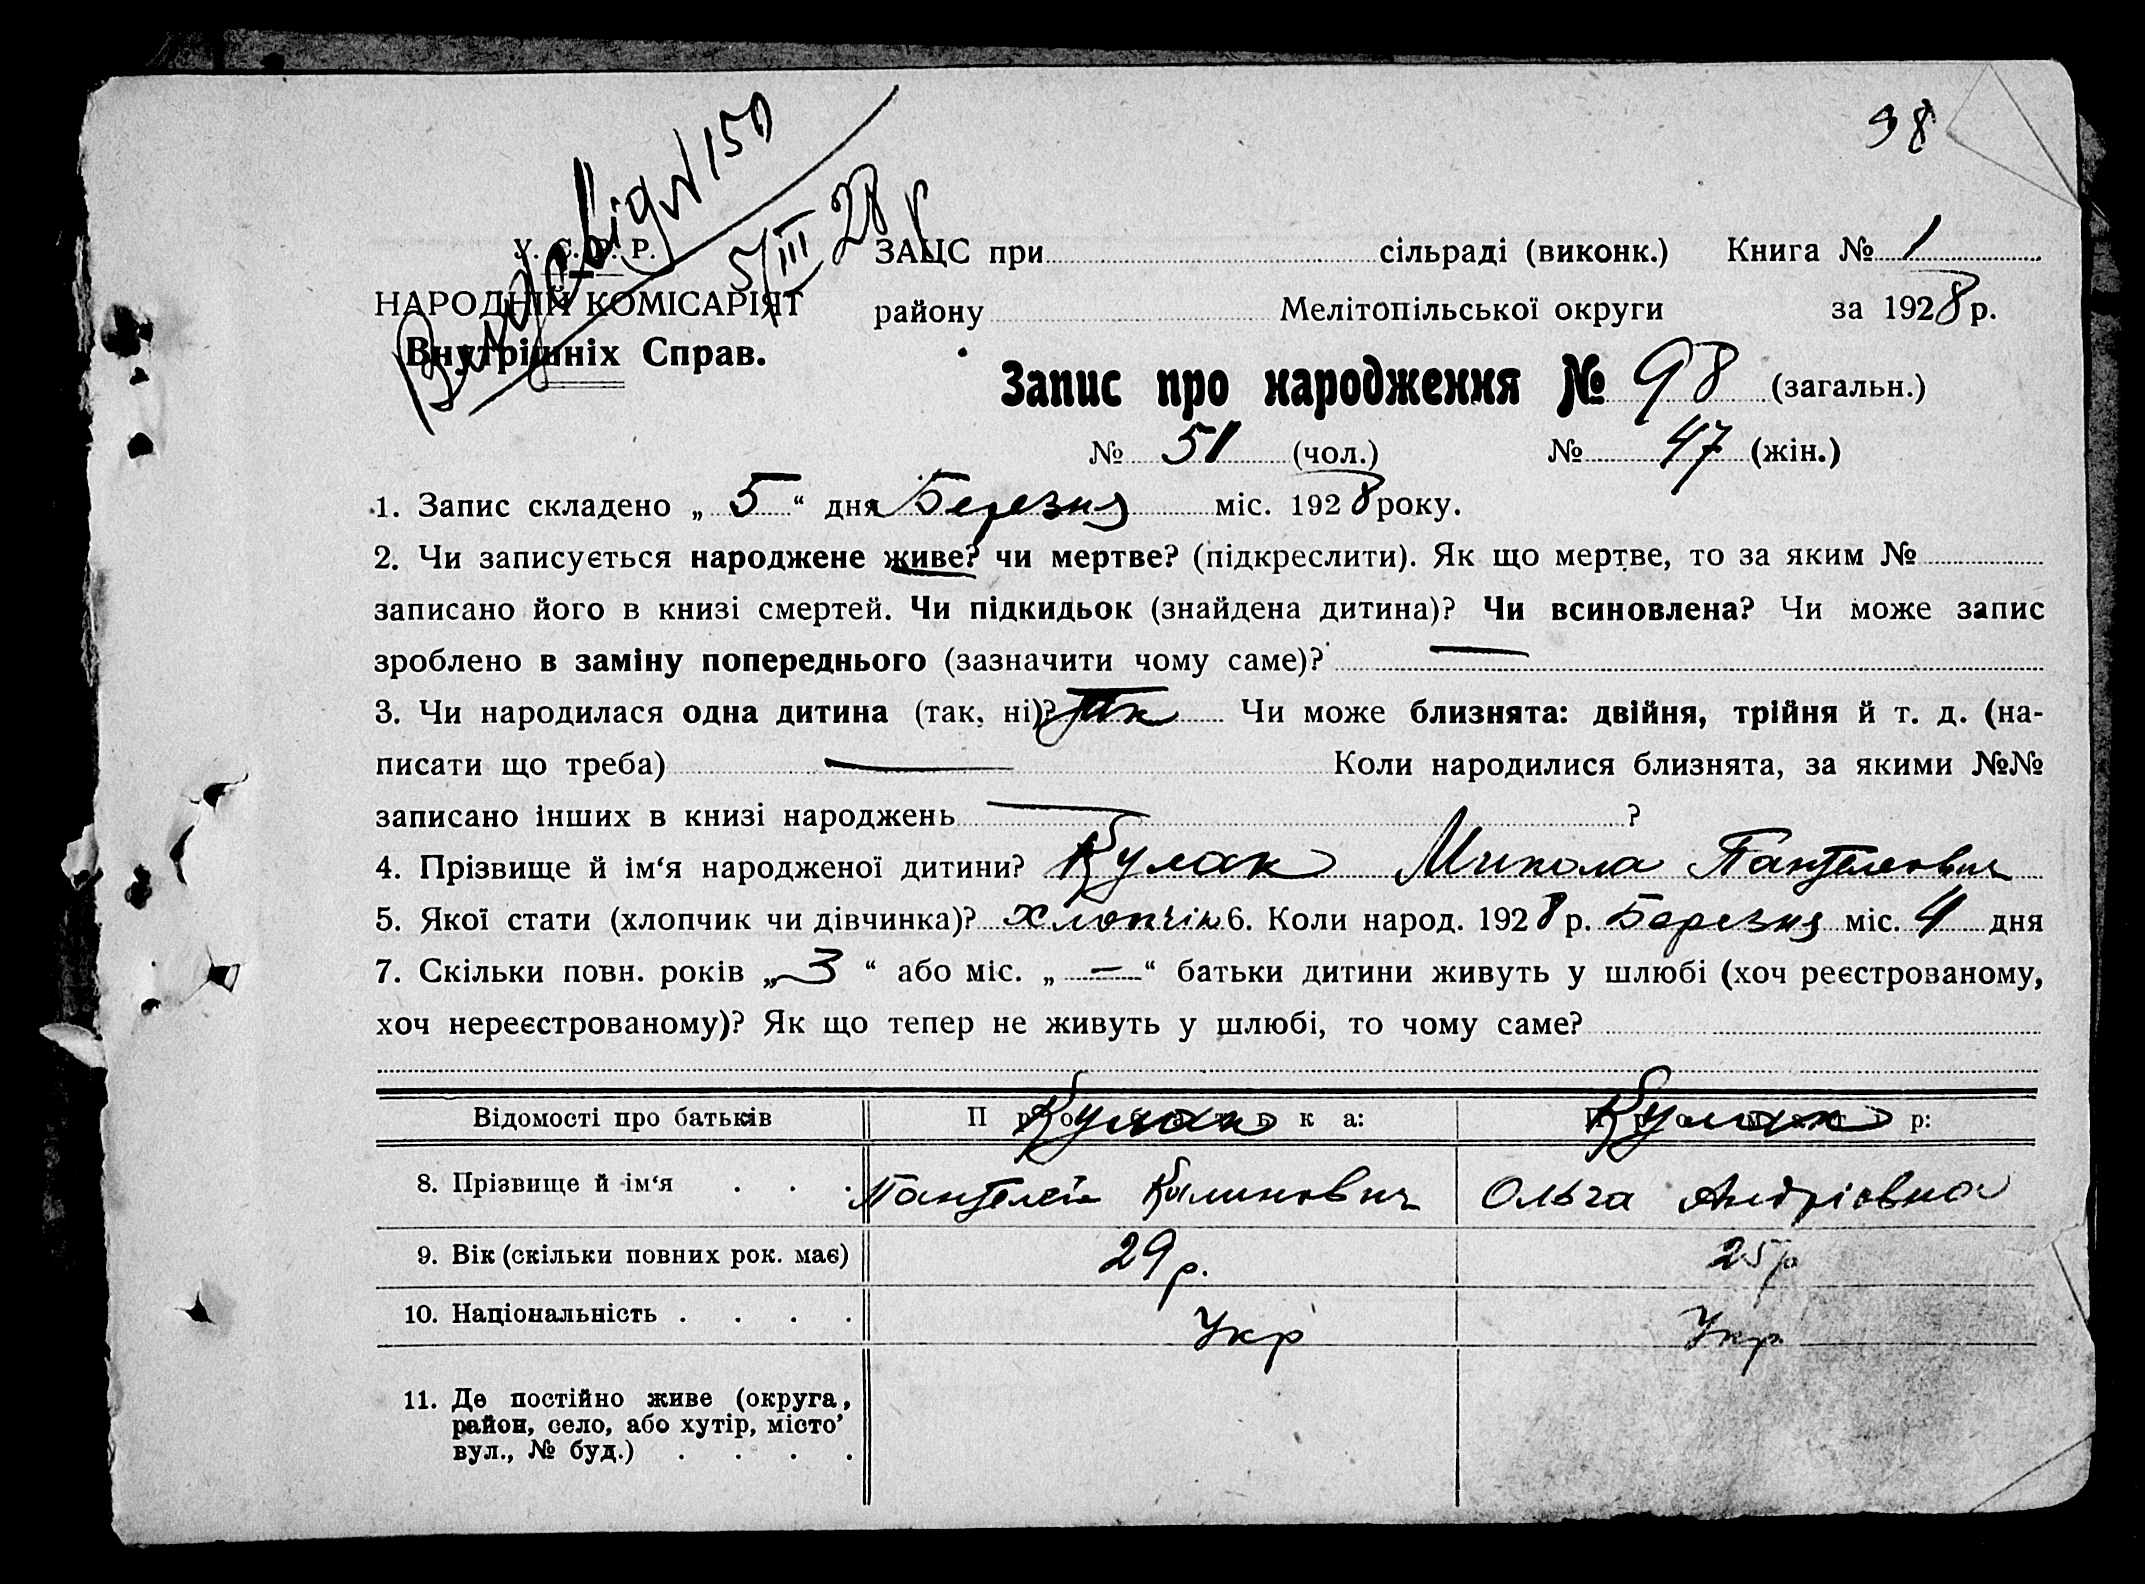 98
Видав Від № 150
5/III 28 р
У. С. Р. Р.
НАРОДНІЙ КОМІСАРІЯТ
Внутрішніх Справ.
ЗАЦС при сільраді (виконк.) Книга № 1
району Мелітопільської округи за 1928 р.
Запис про народження № 98 (загальн.)
№ 51 (чол.) № 47 (жін.)
1. Запис складено „ 5 “ дня Березня міс. 1928 року.
2. Чи записується народжене живе? чи мертве? (підкреслити). Як що мертве, то за яким №
записано його в книзі смертей. Чи підкидьок (знайдена дитина)? Чи всиновлена? Чи може запис
зроблено в заміну попереднього (зазначити чому саме)? —
3. Чи народилася одна дитина (так, ні)? так Чи може близнята: двійня, трійня й т. д. (на-
писати що треба) — Коли народилися близнята, за якими №№
записано інших в книзі народжень — ?
4. Прізвище й ім‘я народженої дитини? Кулак Микола Пантелеєвич
5. Якої стати (хлопчик чи дівчинка)? Хлопчик 6. Коли народ. 1928 р. Березня міс. 4 дня
7. Скільки повн. років „ 3 “ або міс. „ — “ батьки дитини живуть у шлюбі (хоч реєстрованому,
хоч нереєстрованому)? Як що тепер не живуть у шлюбі, то чому саме?
Відомості про батьків Про батька: Про матір:
Кулак Кулак
8. Прізвище й ім‘я . . . Пантелей Калинович Ольга Андріовна
9. Вік (скільки повних рок. має) 29 р. 25 р
10. Національність . . . . Укр Укр
11. Де постійно живе (округа,
район, село, або хутір, місто’
вул., № буд.) . . . .